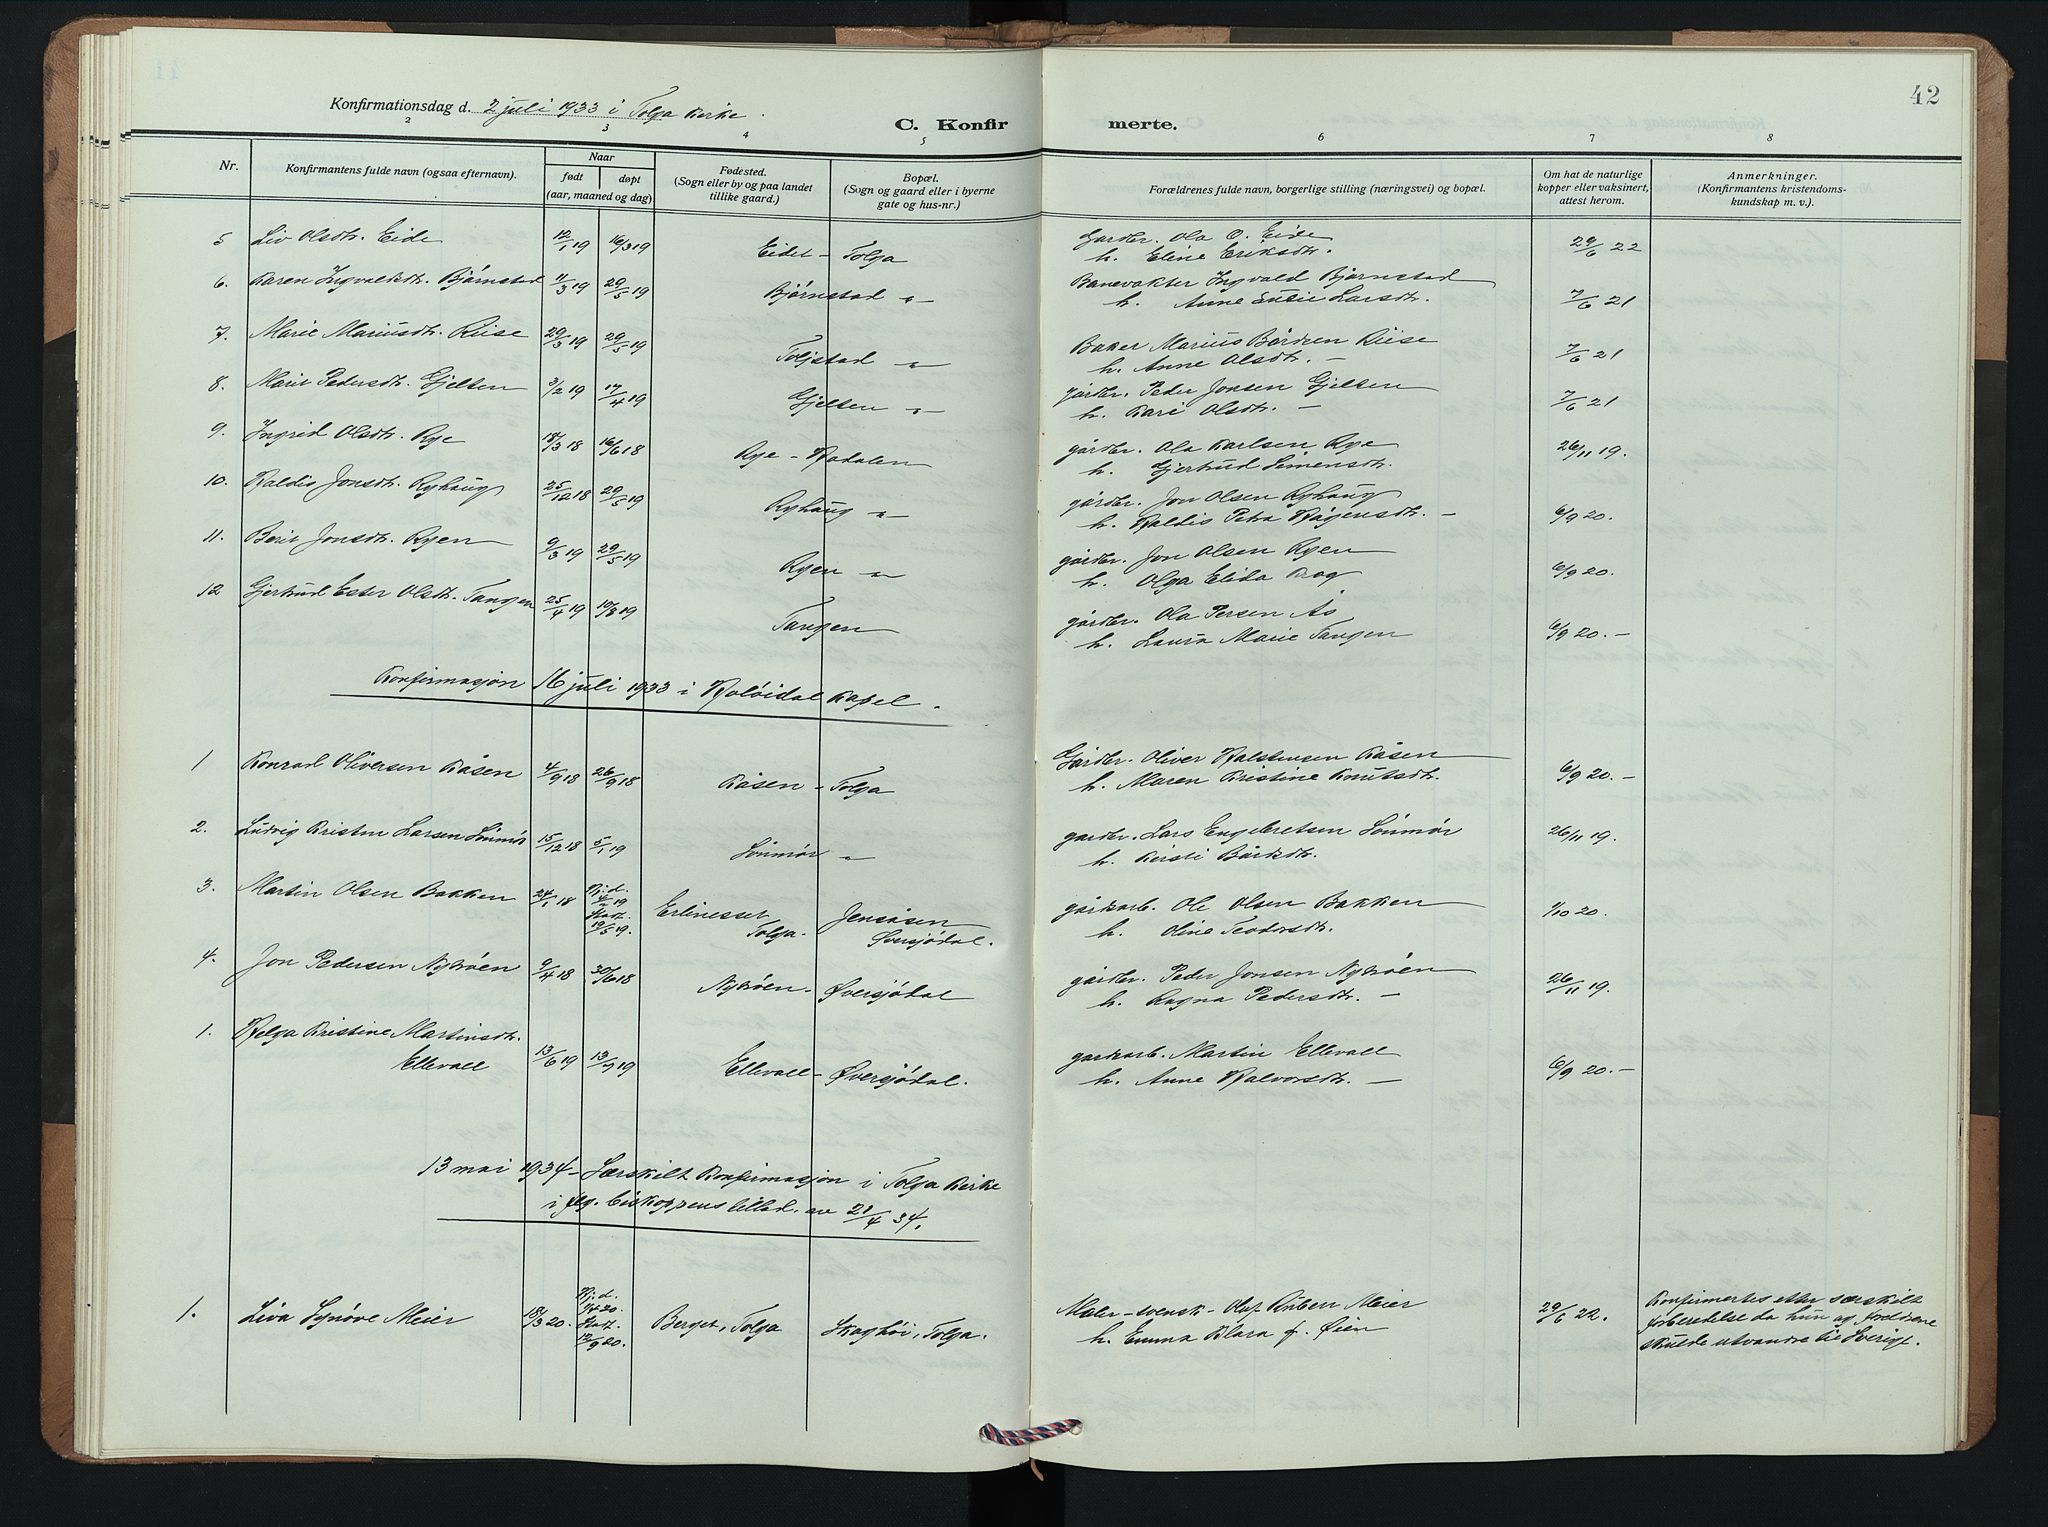 42
Konfirmationsdag d. 2 juli 1933 i Tolga Kirke.
C. Konfir merte.
2 3 4 5 6 7 8
Nr. Konfirmantens fulde navn (ogsaa efternavn). Naar født døpt (aar, maaned og dag) Fødested. (Sogn eller by og paa landet tillike gaard.) Bopæl. (Sogn og gaard eller i byerne gate og hus-nr.) Forældrenes fulde navn, borgerlige stilling (næringsvei) og bopæl. Om hat de naturlige kopper eller vaksinert, attest herom. Anmerkninger. (Konfirmantens kristendoms-kundskap m. v.).
5 Liv Olsdtr. Eide 12/1 19 16/3 19 Eidet - Tolga Gardbr. Ola O. Eide 29/6 22
h. Eline Eriksdtr.
6. Karen Ingvaldsdtr. Bjørnstad 11/3 19 29/5 19 Bjørnstad " Banevakter Ingvald Bjørnstad 7/6 21
h. Anne Larsdtr.
7. Marie Mariusdtr. Riise 29/3 19 29/5 19 Toljstad " Baker Marius Bårdsen Riise 7/6 21
h. Anne Olsdtr. —
8. Marit Pedersdtr. Gjelten 3/2 19 17/4 19 Gjelten " gårdbr. Peder Jonsen Gjelten 7/6 21
h. Kari Olsdtr. —
9. Ingrid Olsdtr. Rye 18/3 18 16/6 18 Rye - Hodalen gårdbr. Ola Karlsen Rye 26/11 19.
h. Gjertrud Simensdtr.
10. Haldis Jonsdtr. Ryhaug 25/12 18 29/5 19 Ryhaug " gårdbr. Jon Olsen Ryhaug 6/9 20.
h. Haldis Petra Hågensdtr. —
11. Berit Jonsdtr. Ryen 9/3 19 29/5 19 Ryen " gårdbr. Jon Olsen Ryen 6/9 20.
h. Olga Elida Krog
12 Gjertrud Ester Olsdtr. Tangen 25/4 19 10/8 19 Tangen gårdbr. Ola Persen Ås 6/9 20. —
h. Laura Marie Tangen
Konfirmasjon 16 juli 1933 i Holøidal Kapel.
1 Konrad Oliversen Kåsen 4/9 18 26/9 18 Kåsen - Tolga Gårdbr. Oliver Halstensen Kåsen 6/9 20. —
h. Maren Kristine Knutsdtr.
2. Ludvig Kristen Larsen Lönmör 15/12 18 5/1 19 Lönmör " gardbr. Lars Engebretsen Lönmör 26/11 19.
h. Kirsti Bårdsdtr.
3. Martin Olsen Bakken 24/1 18 Hj. d. Stadf. 19/5 19. Erlinesset Tolga. Jensåsen Øversjödal. gårdarb. Ole Olsen Bakken 1/10 20.
h. Oline Teodorsdtr.
4. Jon Pedersen Nytrøen 9/4 18 30/6 18 Nytrøen - Øversjødal gårdbr. Peder Jonsen Nytrøen 26/11 19.
h. Ragna Pedersdtr. —
1. Helga Kristine Martinsdtr. Ellevall 13/6 19 13/7 19 Ellevall - Øversjødal. gardarb. Martin Ellevall 6/9 20. —
h. Anne Halvorsdtr. —
13 mai 1934 - Særskilt Konfirmasjon i Tolga Kirke
i flg. biskoppens tillad. av 21/4 34.
1. Liva Synøve Meier 18/3 20. Hj. d. Stadf. 12/9 20. Berget, Tolga Skoghöi, Tolga. Maler - svensk - Olaf Ruben Meier 29/6 22. Konfirmertes etter særskilt
h. Emma Klara f. Øien forberedelse da hun og foreldrene
skulde utvandre til Sverige.